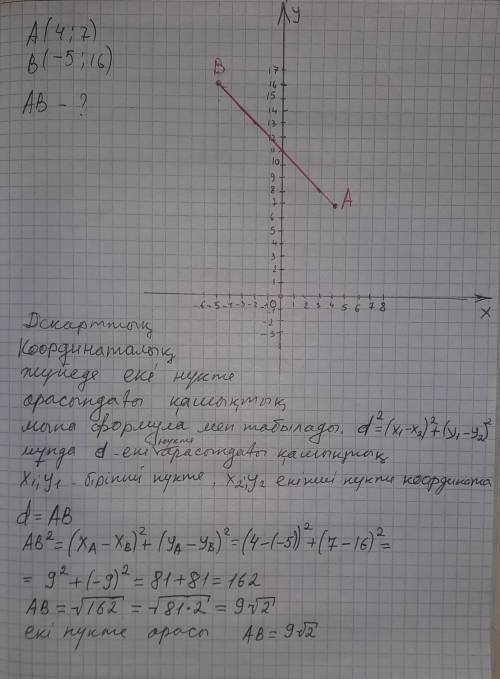 A(4;7)
B(-5;16)
AB - ?
y
B
17
16
15
14
13
12
11
10
9
8
7
6
5
4
3
2
1
A
-6 -5 -4 -3 -2 -1 0 1 2 3 4 5 6 7 8
x
-1
-2
-3
Дскарттық
Координаталық
жүйеде екі нүкте
арасындағы қашықтық
мына формула мен табылады. d²=(x₁-x₂)²+(y₁-y₂)²
нүкте
мұнда d - екі арасындағы қашықтық
x₁;y₁ - бірінші нүкте, x₂;y₂ екінші нүкте координата
d = AB
AB² = (x_A - x_B)² + (y_A - y_B)² = (4-(-5))² + (7-16)² =
= 9² + (-9)² = 81 + 81 = 162
AB = √162 = √81·2 = 9√2
екі нүкте арасы AB = 9√2